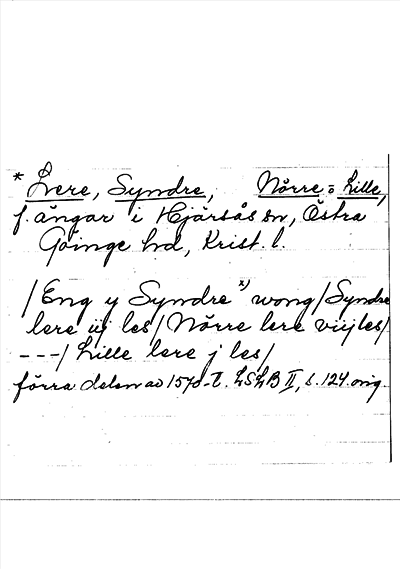 * Lere, Syndre, Nörre- o Lille,
f. ängar i Hjärsås sn, Östra
Göinge hd, Krist. l.
/Eng y Syndre x) wong/Syndre
lere iij les/Nörre lere viij les/
---/Lille lere j les/
förra delen av 1570-t. LSLB II, s. 124 orig.